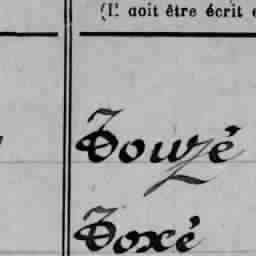 doit être écrit
Touzé
Toxé